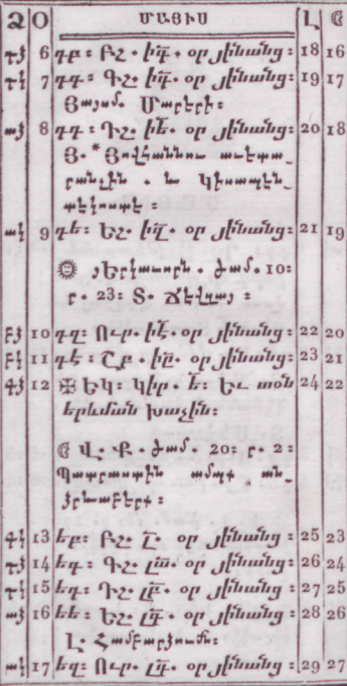 Ձ Օ ՄԱՅԻՍ Լ ☾
դձ 6 դբ։ Բշ. իգ. օր յինանց։ 18 16
դլ 7 դգ։ Գշ. իդ. օր յինանց։ 19 17
Յայսմ.
աձ 8 դդ։ Դշ. իե. օր յինանց։ 20 18
Յ. *Յովհաննու աւետա֊
րանչին . և Կիսապէն֊
տէկոստէ։
ալ 9 դե։ Եշ. իզ. օր յինանց։ 21 19
յԵրկաւորն . ժամ. 10։
ր. 23։ Տ. Ճէվզայ։
բձ 10 դզ։ Ուր. իէ. օր յինանց։ 22 20
բլ 11 դէ։ Շբ. իը. օր յինանց։ 23 21
գձ 12 ✠ Եկ։ Կիր. Ե։ Եւ տօն 24 22
երևման խաչին։
☾ Վ. Ք. ժամ. 20։ ր. 2։
Պատրաստին ամպք . ան֊
ձրևաբերք։
գլ 13 եբ։ Բշ. լ. օր յինանց։ 25 23
դձ 14 եգ։ Գշ. լա. օր յինանց։ 26 24
դլ 15 եդ։ Դշ. լբ. օր յինանց։ 27 25
աձ 16 եե։ Եշ. լգ. օր յինանց։ 28 26
Լ. Համբարձումն։
ալ 17 եզ։ Ուր. լդ. օր յինանց։ 29 27